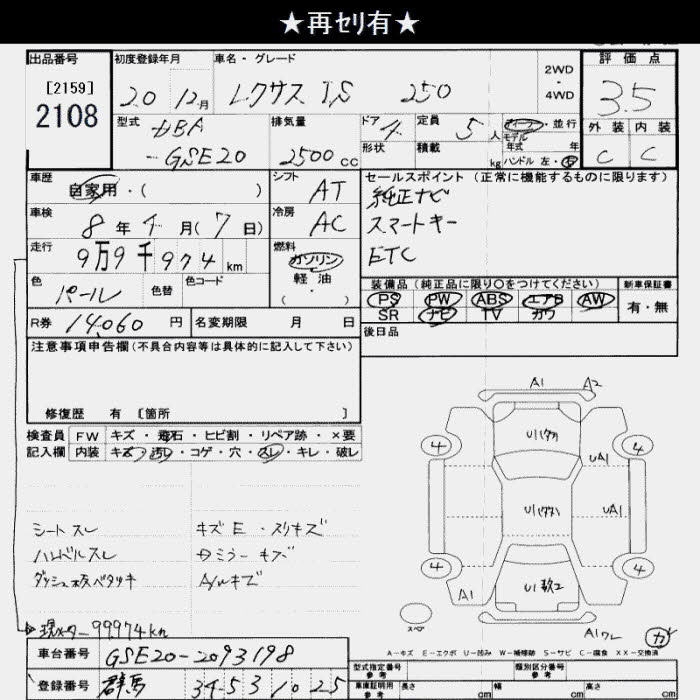 ★再セリ有★
出品番号 初度登録年月 車名・グレード 2WD ・ 4WD 評価点
[2159]
2108
20 12月 レクサス IS 250 3.5
型式 DBA -GSE20 排気量 2500cc ドア 4 定員 5人 ディーラー・並行 外装 内装
形状 積載 kg モデル年式 年 ハンドル 左・右 C C
車歴 自家用・( ) シフト AT セールスポイント (正常に機能するものに限ります)
純正ナビ
車検 8年4月(7日) 冷房 AC スマートキー
走行 9万9千974km 燃料 ガソリン 軽油 ( ・ ) ETC
色 パール 色替 色コード 装備品(純正品に限り○をつけてください) 新車保証書
PS PW ABS エアB AW 有・無
SR ナビ TV カワ
R券 14,060円 名変期限 月 日 後日品
注意事項申告欄(不具合内容等は具体的に記入して下さい)
修復歴 有 [箇所 ]
検査員 FW キズ・飛石・ヒビ割・リペア跡・×要
記入欄 内装 キズ・汚れ・コゲ・穴・スレ・キレ・破レ
A1 A2
U1(タタ)
4 4
UA1
U1(タタ) UA1
4 4
A1 U1
シート スレ キズE・スリキズ
ハンドルスレ Dミラーキズ
ダッシュ板ベタツキ A/Wキズ
スペア A1ワレ ガ
現メーター99974km
A-キズ E-エクボ U-凹み W-補修跡 S-サビ C-腐食 XX-交換済
車台番号 GSE20-2093198
型式指定番号 参考 類別区分番号 参考
登録番号 群馬 34-53 1025
車庫証明用 参考 長さ cm 幅 cm 高さ cm